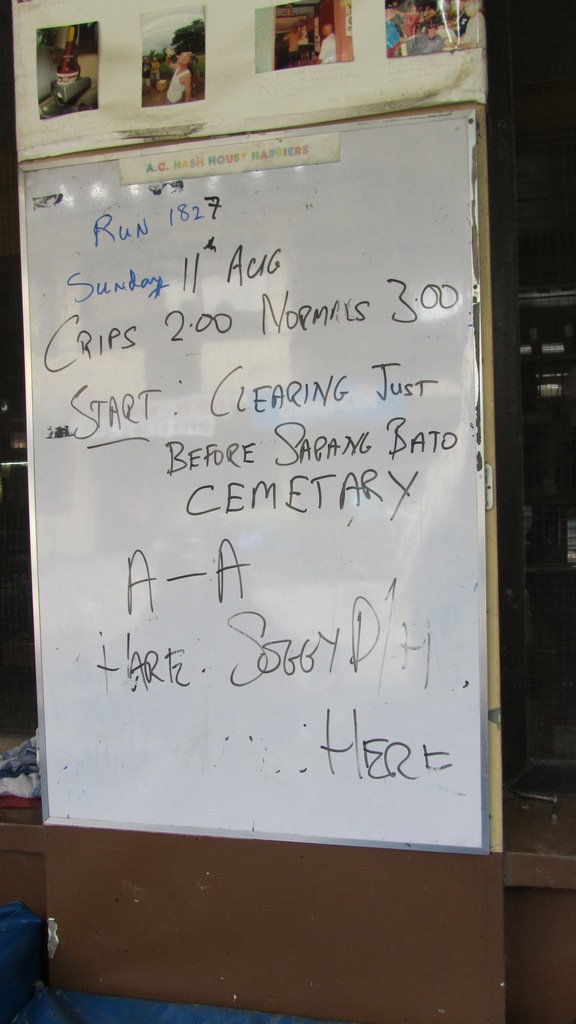 A.C. HASH HOUSE HARRIERS
RUN 1827
Sunday 11th AUG
CRIPS 2.00 NORMALS 3.00
START: CLEARING JUST
BEFORE SAPANG BATO
CEMETARY
A-A
HARE. SOGGY D/H
..... HERE